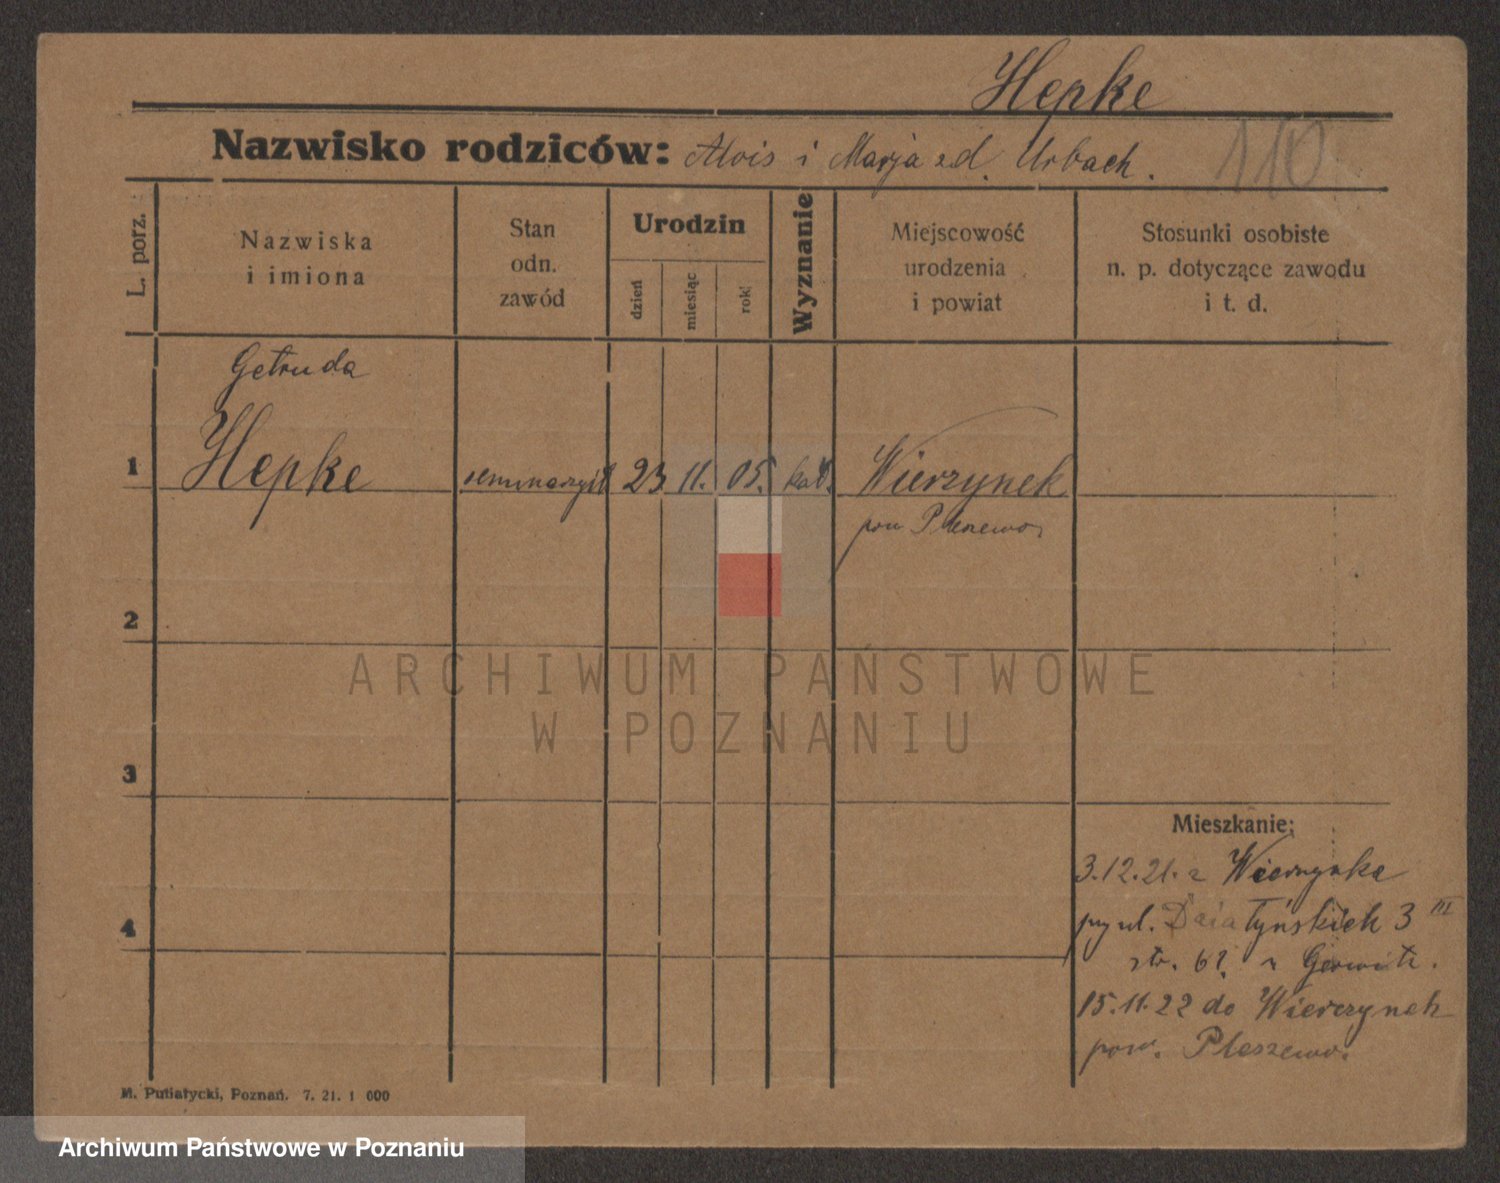 Hepke
Nazwisko rodziców: Alois i Marja zd. Urbach.
110
L. porz.
Nazwiska
i imiona
Stan
odn.
zawód
Urodzin
dzień
miesiąc
rok
Wyznanie
Miejscowość
urodzenia
i powiat
Stosunki osobiste
n. p. dotyczące zawodu
i t. d.
Getruda
1 Hepke 23 11. 05. kat. Wierzynek
pow Pleszewo
2
ARCHIWUM PAŃSTWOWE
W POZNANIU
3
Mieszkanie:
3.12.21. z Wierzynka
przy ul. Działyńskich 3 III
str. 6
4
15.11.22 do Wierzynek
pow. Pleszewo.
M. Putiatycki, Poznań. 7. 21. 1 000
Archiwum Państwowe w Poznaniu